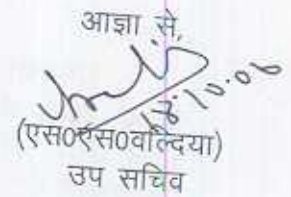 आज्ञा से,
18.10.06
(एस0एस0वल्दिया)
उप सचिव